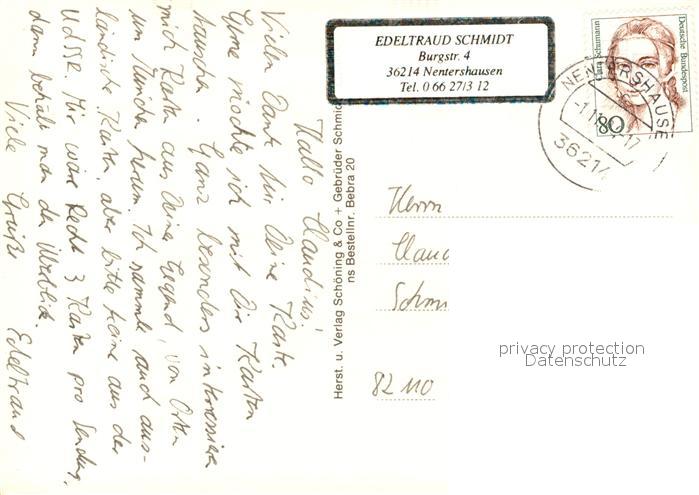 Hallo Claudius!
Vielen Dank für Deine Karte.
Gerne möchte ich mit Dir Karten
tauschen. Ganz besonders interessiere
mich Karten aus Deiner Gegend, von Orten
um München herum. Ich sammle auch aus-
ländische Karten, aber bitte keine aus der
UdSSR. Mir wäre Recht 3 Karten pro Sendung,
dann behält man den Überblick.
Viele Grüße Edeltraud
Herst. u. Verlag Schöning & Co + Gebrüder Schmid
ns Bestellnr. Bebra 20
EDELTRAUD SCHMIDT
Burgstr. 4
36214 Nentershausen
Tel. 0 66 27/3 12
Clara Schumann
Deutsche Bundespost
80
NENTERSHAUSEN
36214
Herrn
Claud
Schm
82110
privacy protection
Datenschutz